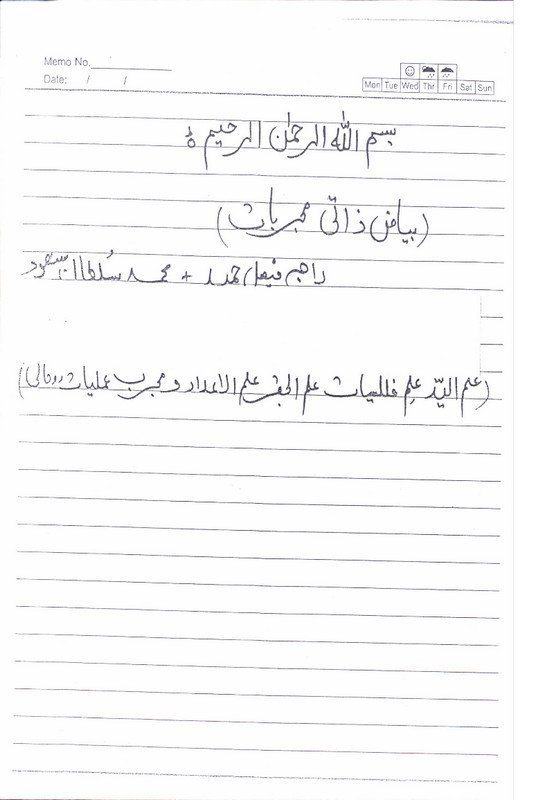 Memo No.
Date: / /
Mon Tue Wed Thr Fri Sat Sun
بسم الله الرحمٰن الرحیم ہ
(بیاض ذاتی مجربات)
راجہ فیصل حمید + محمد سُلطان مسعود
(علم الیّد علمِ فلکیات علم الجفر علم الاعداد و مجرب عملیات روحانی)